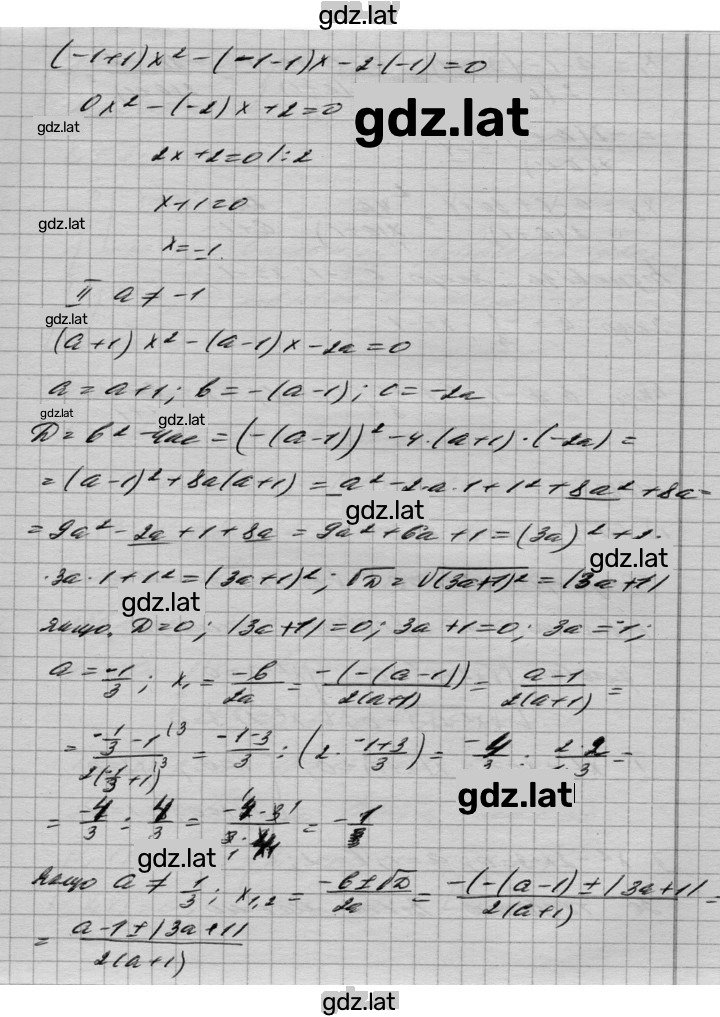 gdz.lat
(-1+1)x² - (-1-1)x - 2·(-1) = 0
0x² - (-2)x + 2 = 0
gdz.lat
gdz.lat
2x + 2 = 0 | : 2
x + 1 = 0
gdz.lat
x = -1.
II a ≠ -1
gdz.lat
(a+1)x² - (a-1)x - 2a = 0
a = a+1; b = -(a-1); c = -2a
gdz.lat
gdz.lat
D = b² - 4ac = (-(a-1))² - 4·(a+1)·(-2a) =
= (a-1)² + 8a(a+1) = a² - 2·a·1 + 1² + 8a² + 8a =
gdz.lat
= 9a² - 2a + 1 + 8a = 9a² + 6a + 1 = (3a)² + 2·
gdz.lat
·3a·1 + 1² = (3a+1)²; √D = √(3a+1)² = |3a+1|
gdz.lat
Якщо D = 0; |3a+1| = 0; 3a+1 = 0; 3a = -1;
a = -1/3; x₁ = -b/2a = -(-(a-1))/2(a+1) = a-1/2(a+1) =
= -1/3 - 1/2(-1/3+1) = -1-3/3 : (2 · -1+3/3) = -4/3 : 2·2/3 =
gdz.lat
= -4/3 : 4/3 = -4·3/3·4 = -1
gdz.lat
Якщо a ≠ 1/3; x₁,₂ = -b±√D/2a = -(-(a-1)±|3a+1|/2(a+1) =
= a-1±|3a+1|/2(a+1)
gdz.lat